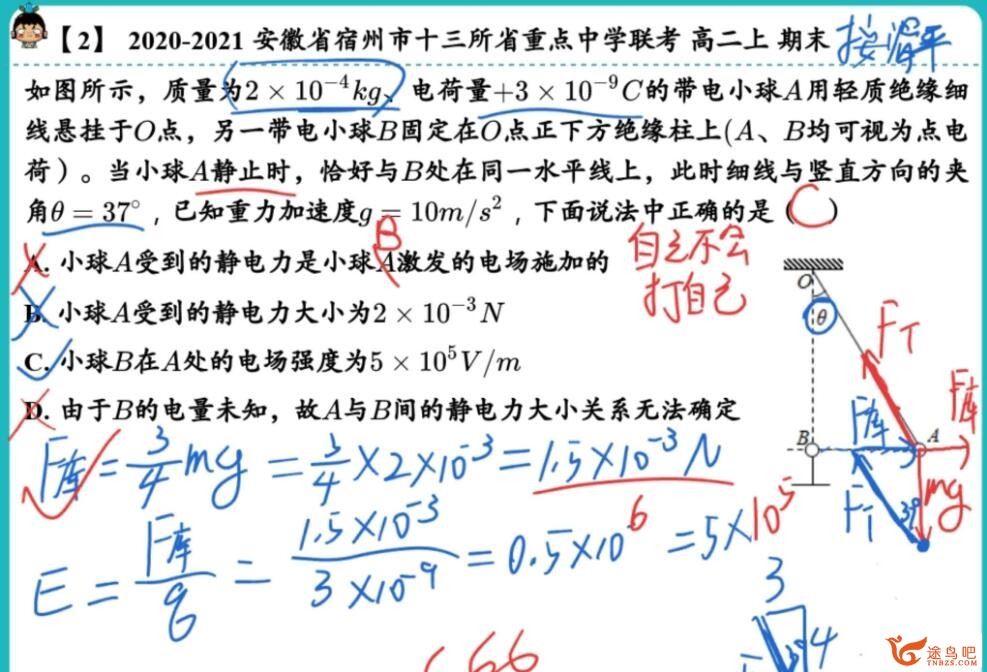 【2】 2020-2021 安徽省宿州市十三所省重点中学联考 高二上 期末 接泥平
如图所示，质量为2 × 10⁻⁴kg、电荷量+3 × 10⁻⁹C的带电小球A用轻质绝缘细
线悬挂于O点，另一带电小球B固定在O点正下方绝缘柱上(A、B均可视为点电
荷）。当小球A静止时，恰好与B处在同一水平线上，此时细线与竖直方向的夹
角θ = 37°，已知重力加速度g = 10m/s²，下面说法中正确的是（C）
B
A. 小球A受到的静电力是小球A激发的电场施加的
自己不会
打自己
B. 小球A受到的静电力大小为2 × 10⁻³N
C. 小球B在A处的电场强度为5 × 10⁵V/m
D. 由于B的电量未知，故A与B间的静电力大小关系无法确定
O
θ
F_T
F库
F库
B
A
mg
F_T
37°
F库 = 3/4 mg = 3/4 × 2×10⁻³ = 1.5×10⁻³N
E = F库/q = 1.5×10⁻³/3×10⁻⁹ = 0.5×10⁶ = 5×10⁵
3
4
666
途鸟吧
TNBZS.COM